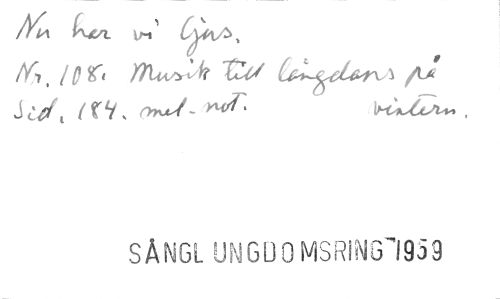 Nu har vi ljus.
Nr. 108. Musik till långdans på
Sid. 184. mel-not. vintern.
SÅNGL UNGDOMSRING 1959